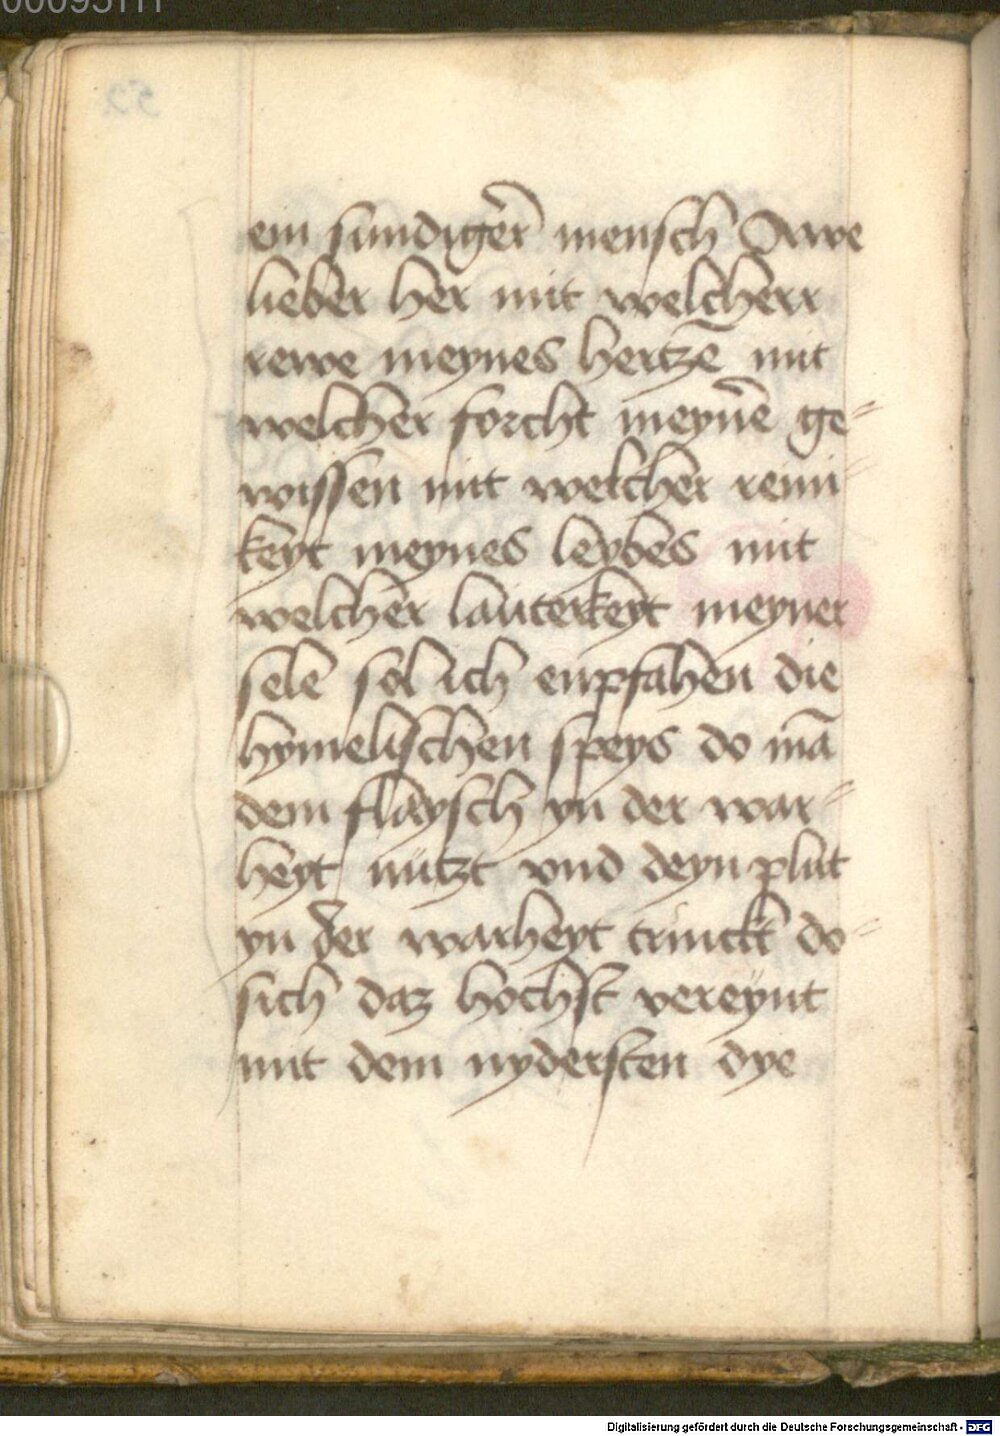 ein sundiger mensch Awe
lieber her mit welcherr
rewe meynes hertzē mit
welcher forcht meynē ge-
wissen mit welcher reini-
keyt meynes leybes mit
welcher lauterkeyt meyner
sele sol ich enpfahen die
hymelischen speys do mā
dem flaysch yn der war-
heyt nützt vnd deyn plut
yn der warheyt trinckt do-
sich daz hochst vereynt
mit dem nydersten dye
Digitalisierung gefördert durch die Deutsche Forschungsgemeinschaft - DFG